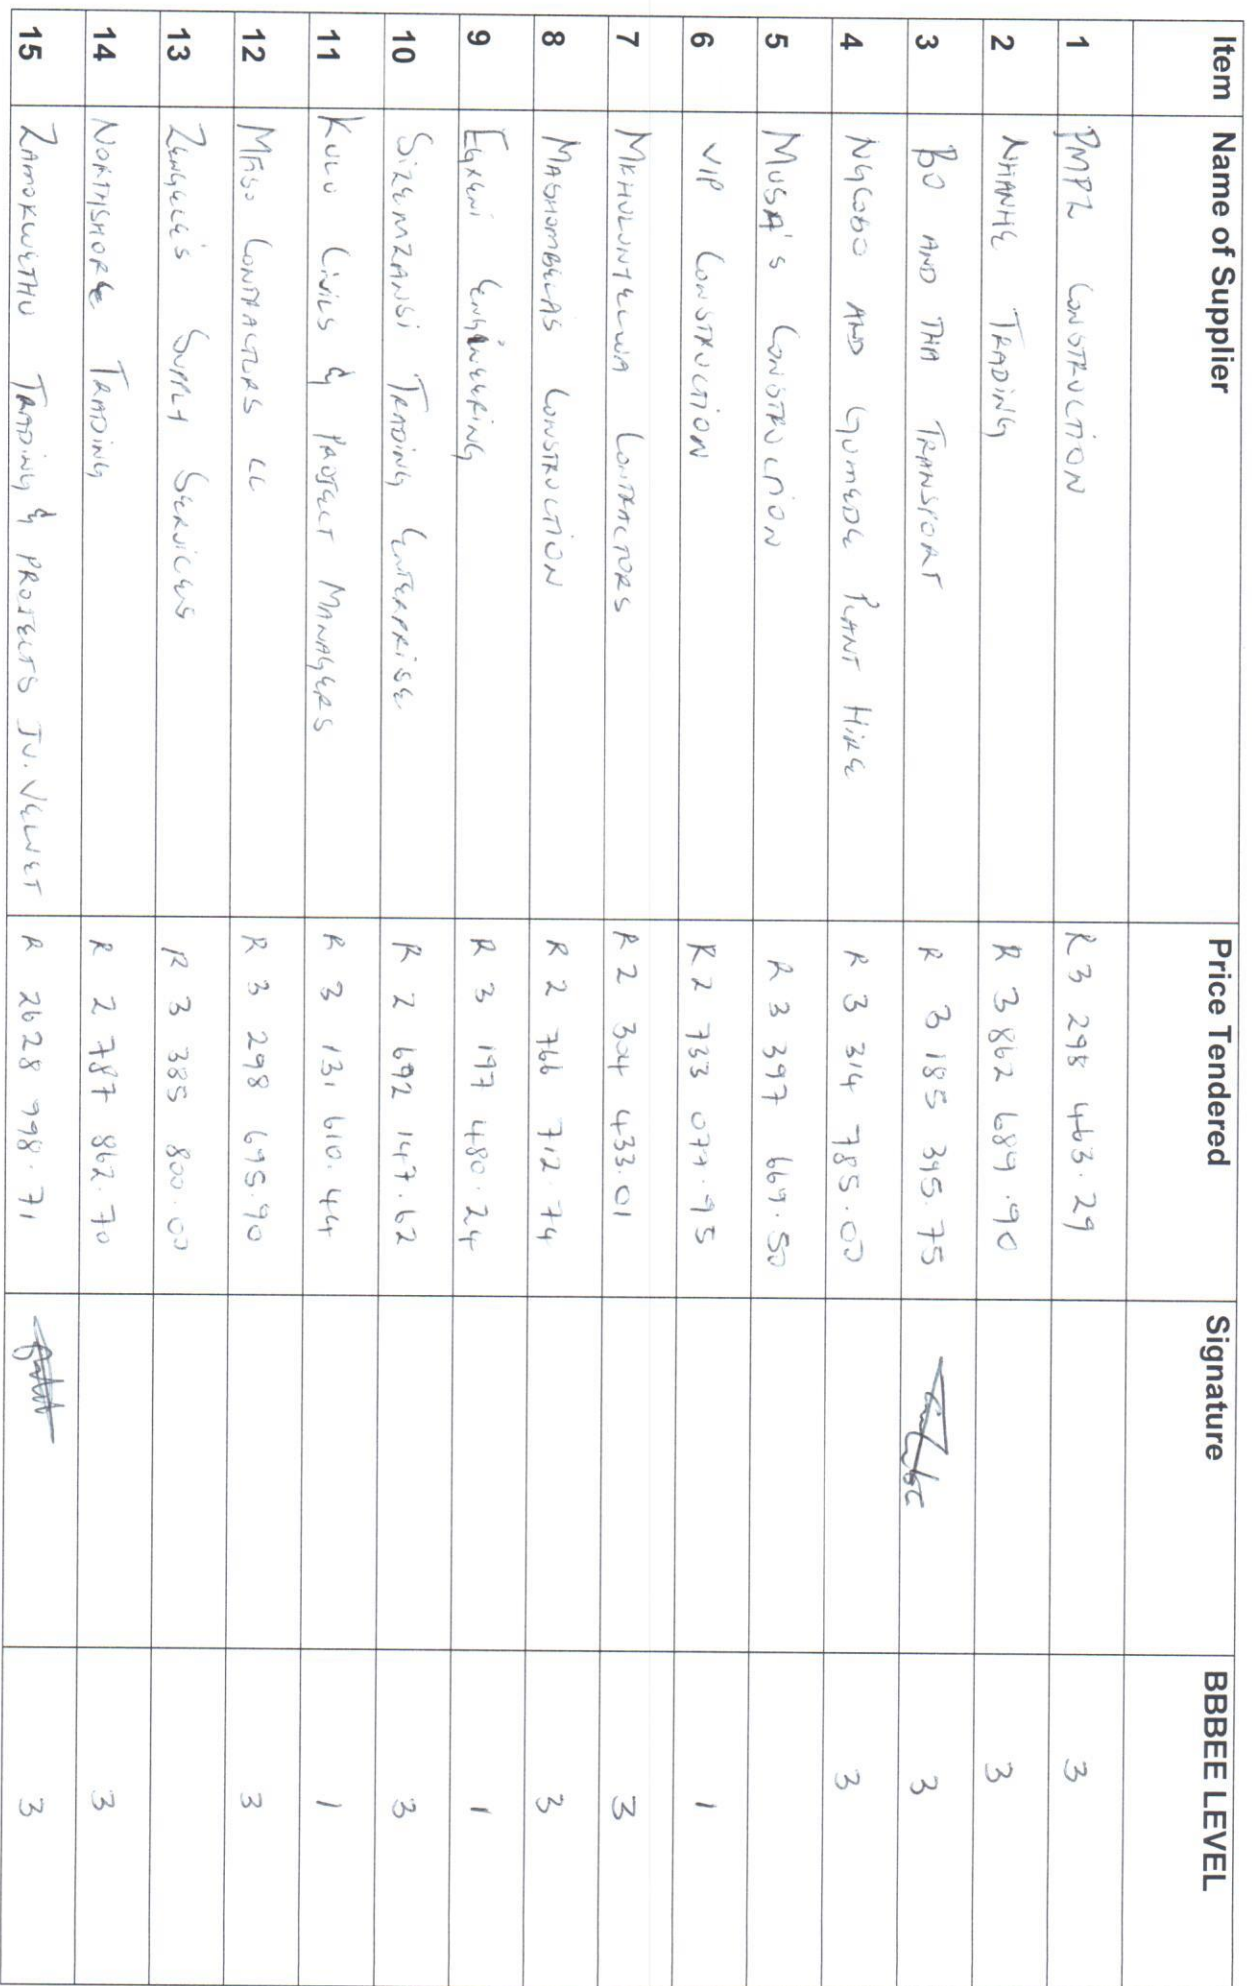 Item Name of Supplier Price Tendered Signature BBBEE LEVEL
1 PMPZ CONSTRUCTION R 3 298 463.29 3
2 NHANHE TRADING R 3 862 689.90 3
3 BO AND THA TRANSPORT R 3 185 395.75 3
4 NGCOBO AND GUMEDE PLANT HIRE R 3 314 785.00 3
5 MUSA'S CONSTRUCTION R 3 397 669.50
6 VIP CONSTRUCTION R 2 733 077.95 1
7 MKHULUNYELWA CONTRACTORS R 2 304 433.01 3
8 MASHOMBELAS CONSTRUCTION R 2 766 712.74 3
9 EGXENI ENGINEERING R 3 197 480.24 1
10 SIZEMZANSI TRADING ENTERPRISE R 2 692 147.62 3
11 KULU CIVILS & PROJECT MANAGERS R 3 131 610.44 1
12 MFISO CONTRACTORS CC R 3 298 695.90 3
13 ZENGELE'S SUPPLY SERVICES R 3 385 800.00
14 NORTHSHORE TRADING R 2 787 862.70 3
15 ZAMOKWETHU TRADING & PROJECTS JV. VELVET R 2628 998.71 3